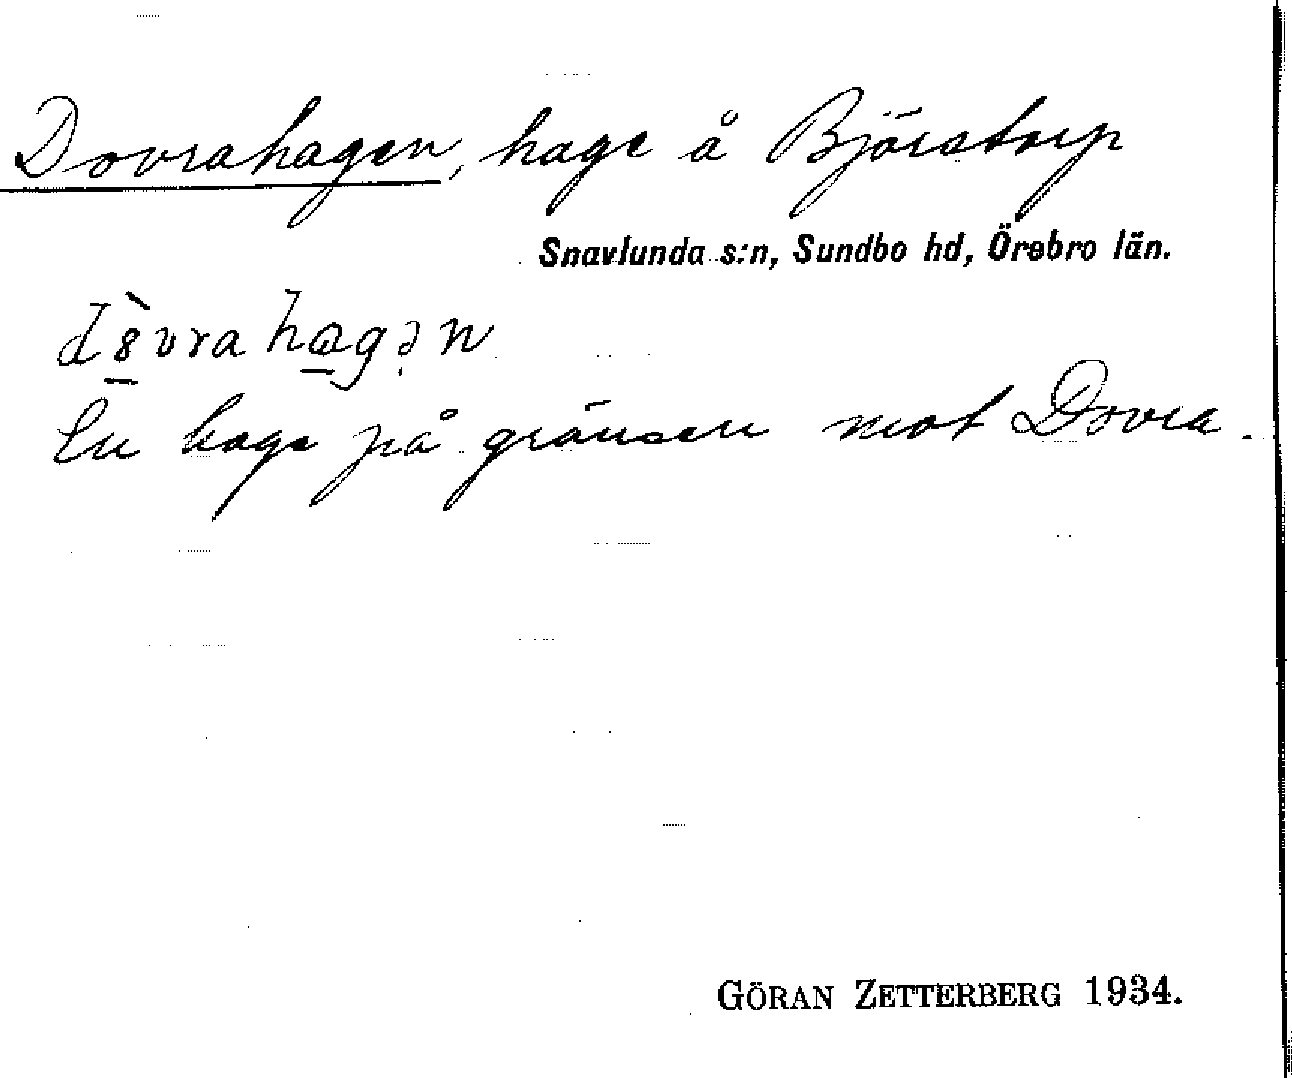 Dovrahagen, hage å Björstorp
Snavlunda s:n, Sundbo hd, Örebro län.
d8̠̀vraha̠gən
En hage på gränsen mot Dovra.
GÖRAN ZETTERBERG 1934.